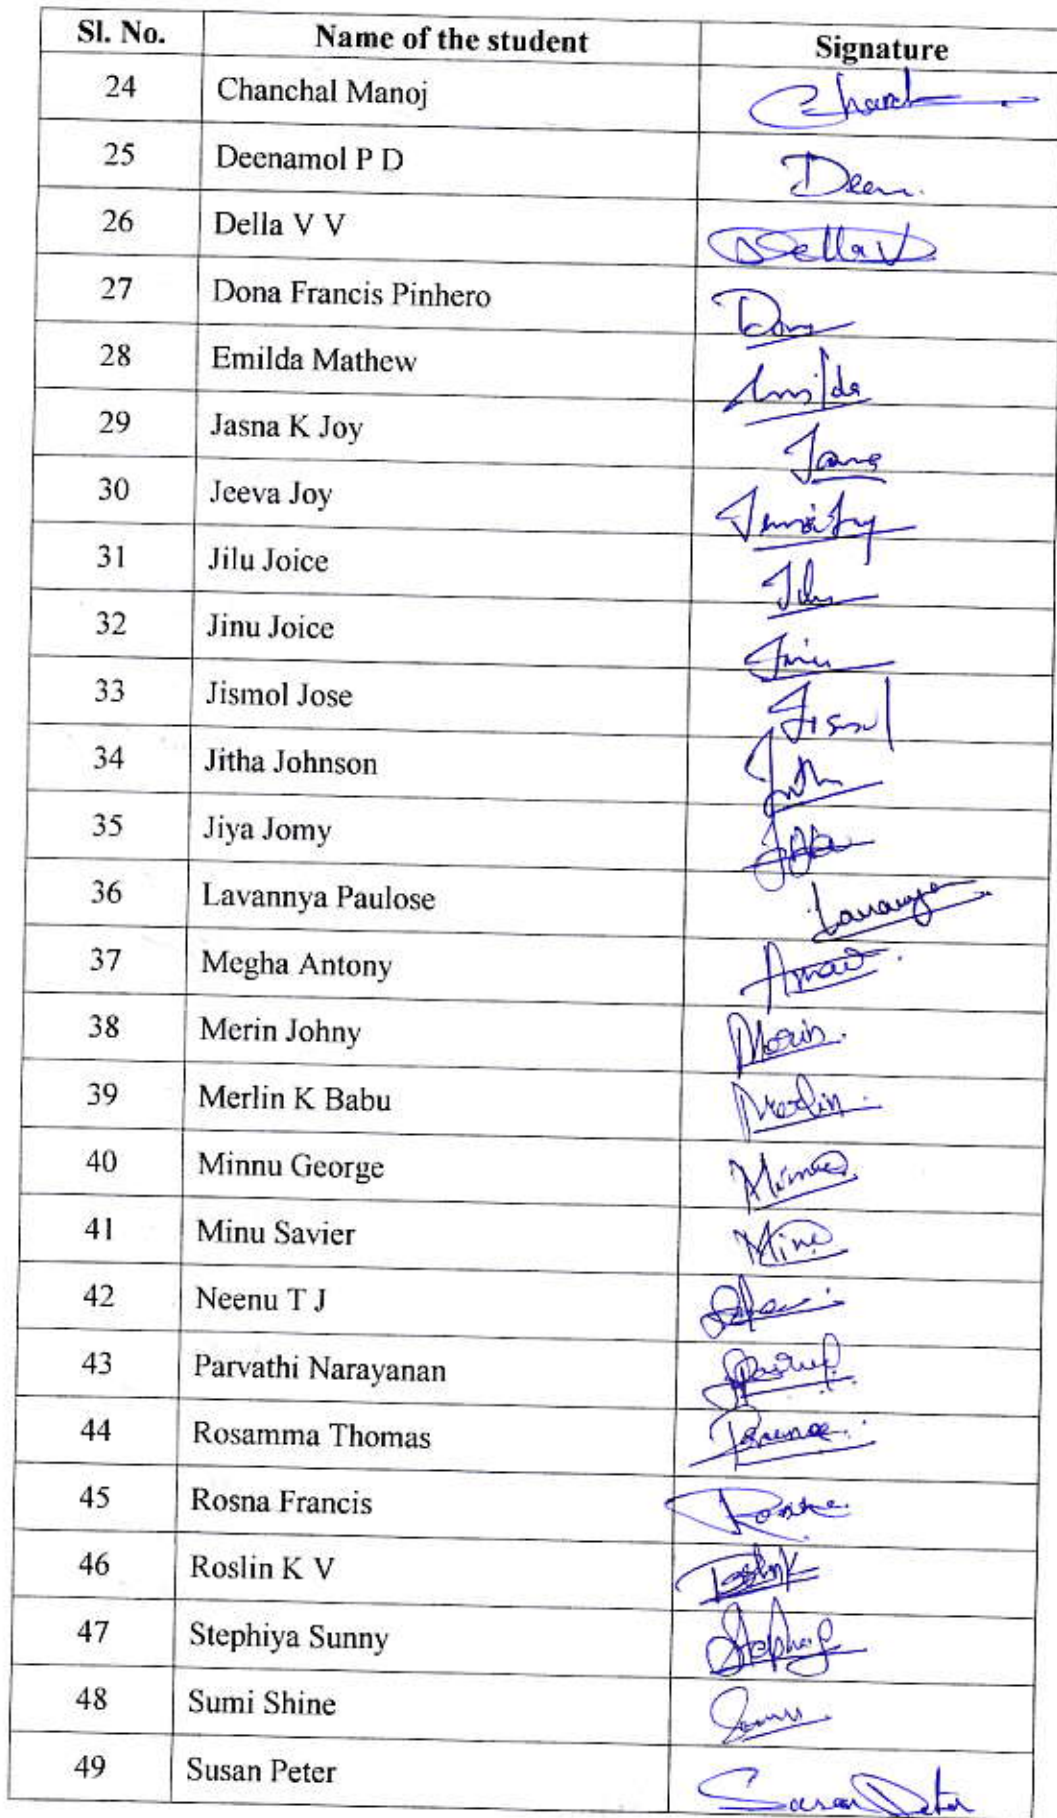 Sl. No. Name of the student Signature
24 Chanchal Manoj
25 Deenamol P D Deen.
26 Della V V Della V
27 Dona Francis Pinhero Dona
28 Emilda Mathew
29 Jasna K Joy
30 Jeeva Joy
31 Jilu Joice Jilu
32 Jinu Joice Jinu
33 Jismol Jose
34 Jitha Johnson Jitha
35 Jiya Jomy
36 Lavannya Paulose
37 Megha Antony
38 Merin Johny Merin.
39 Merlin K Babu Merlin.
40 Minnu George
41 Minu Savier
42 Neenu T J
43 Parvathi Narayanan
44 Rosamma Thomas
45 Rosna Francis
46 Roslin K V
47 Stephiya Sunny
48 Sumi Shine
49 Susan Peter Susan Peter